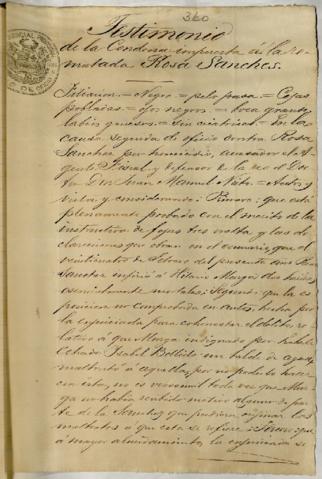 360
Testimonio
de la Condena impuesta á la re-
matada Rosa Sanchez.
Filiacion = Negro = pelo pasa = Cejas
pobladas = Ojos negros = boca grande
labios gruesos = Sin cicatrices = En la
causa seguida de oficio contra Rosa
Sanchez por homicidio, acusador el A-
gente Fiscal, y defensor de la reo el Doc-
tor Don Juan Manuel = Autos y
vistos y considerando: Primero: que está
plenamente probado con el mérito de la
instructiva de fojas tres vuelta y las de-
claraciones que obran en el sumario, que el
veintinueve de Febrero del presente año Rosa
Sanchez infirió á Hilario Murga dos heridas
esencialmente mortales: Segundo: que la es-
posicion no comprobada en autos, hecha por
la enjuiciada para cohonestar el delito, re-
lativo á que Murga indignado por haberle
echado Isabel un balde de agua,
maltrató á aquella, por no poderlo hacer
con esta, no es verosimil toda vez que Mur-
ga no habia sentido motivo alguno de par-
te de la Sanchez que pudiera originar los
maltratos á que esta se refiere: Tercero: que
á mayor abundamiento la enjuiciada se